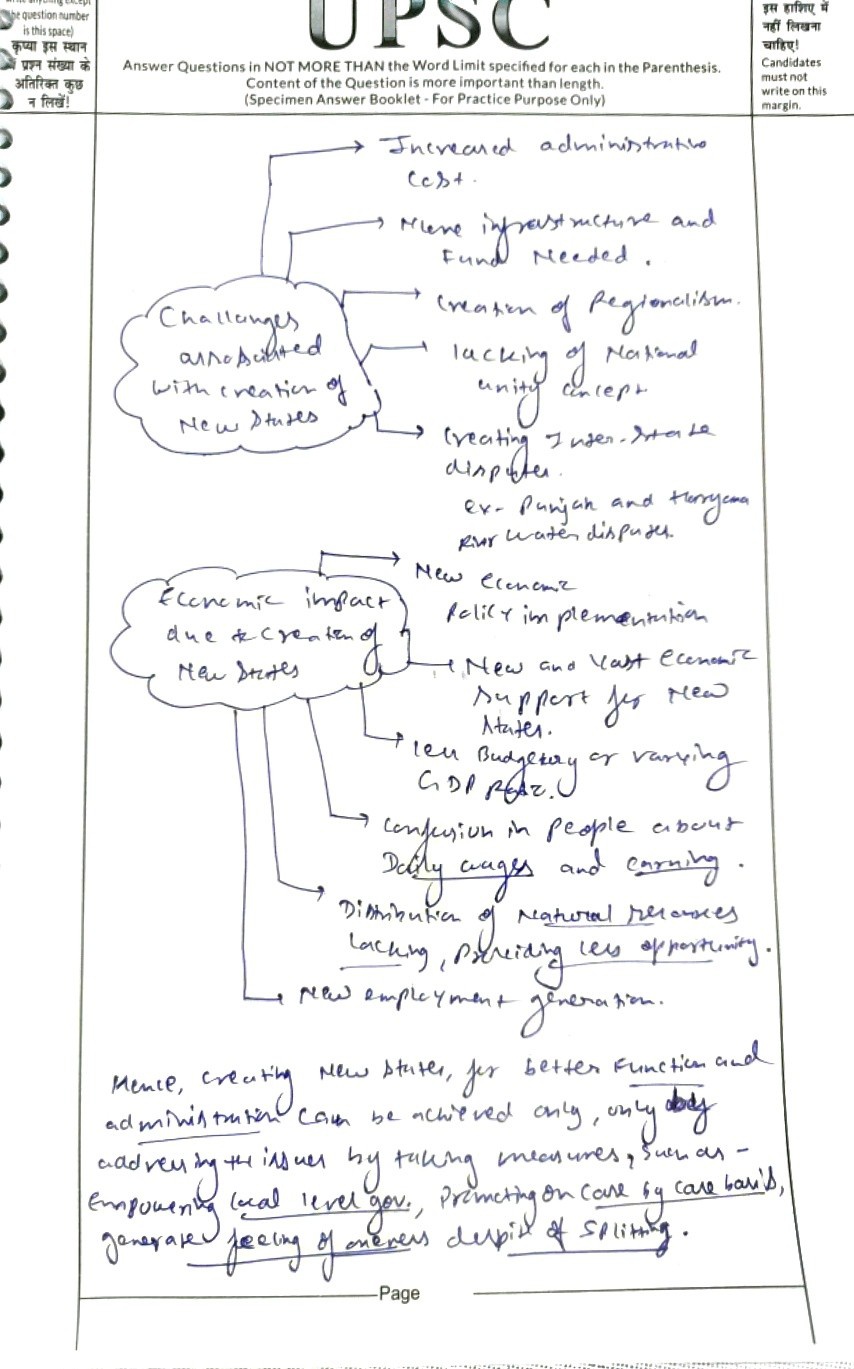 he question number
is this space)
कृप्या इस स्थान
में प्रश्न संख्या के
अतिरिक्त कुछ
न लिखें!
UPSC
Answer Questions in NOT MORE THAN the Word Limit specified for each in the Parenthesis.
Content of the Question is more important than length.
(Specimen Answer Booklet - For Practice Purpose Only)
इस हाशिए में
नहीं लिखना
चाहिए!
Candidates
must not
write on this
margin.
Challanges
associated
with creation of
New States
Increased administrative
Cost.
More infrastructure and
Fund Needed.
Creation of Regionalism.
lacking of National
unity concept
Creating Inter-State
disputes.
ex- Punjab and Harryana
River water disputes.
Economic impact
due to creation of
New States
New economic
Policy implementation
New and Vast economic
Support for New
States.
less Budgetary or varying
GDP
Confusion in People about
Daily wages and earning.
Distribution of Natural resources
lacking, providing less opportunity.
New employment generation.
Hence, creating New States, for better Function and
administration can be achieved only, only by
addressing the issues by taking measures, such as -
empowering local level gov., Promoting on case by case basis,
generate feeling of oneness despite of splitting.
Page